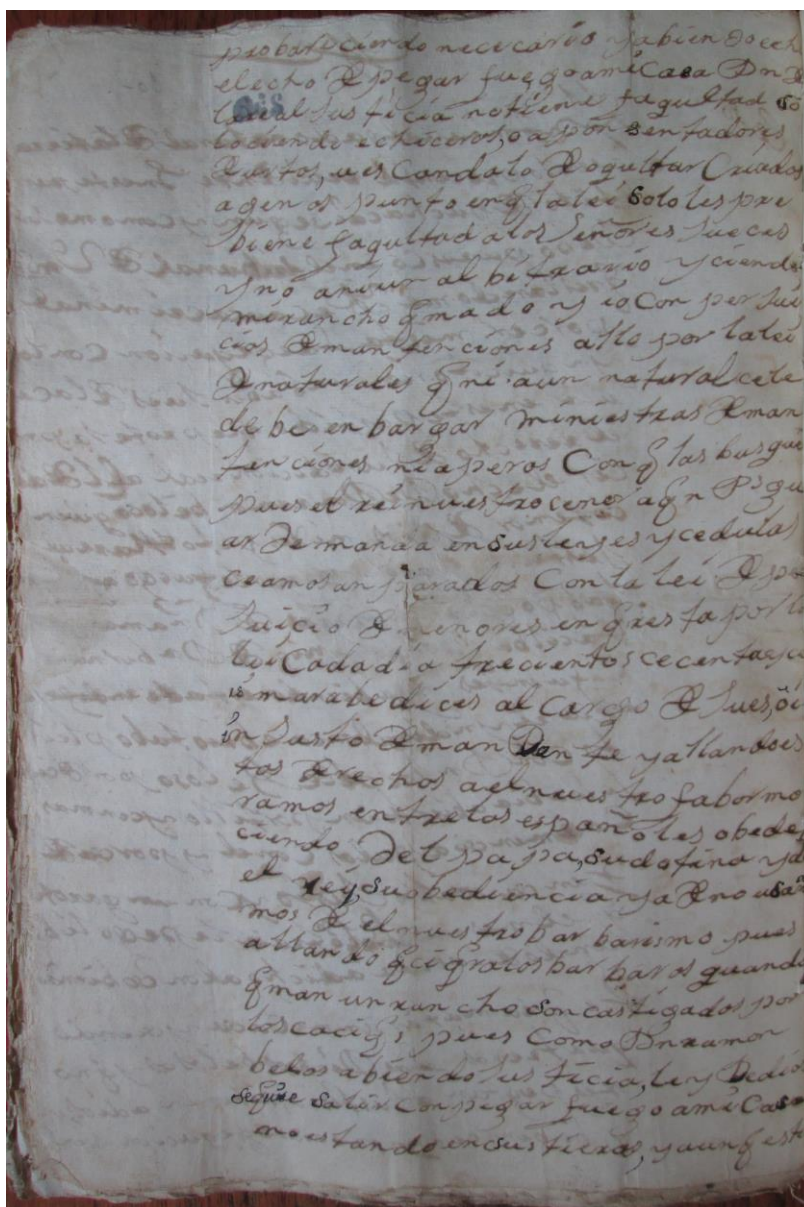 probareciendo nececario yabiendo ech
elecho D pegar fuego amicasa Dn D
la Real Justicia notiene fagultad co
lociendo echiceros, o aporsentadores
Durtos, u escandalo D ogultar Criados
agenos punto en q la lei solo les pre
biene fagultad alos Señores Jueces
y no aniur albitrario yciendo
mirancho qmado y io con perjui
cios D man tenciones allo por la lei
D naturales q ni aun natural cele
debe enbargar miniestras D man
tenciones, ni aperos Con q las busque
pues el rei nuestro cenor a qn Ds gu
arde manda en sus leyes y cedulas
ceamos anparados Con la lei D per
Juicio D menores en q resta por la
lei Cada dia trecientos cecenta y ci
is marabedices al cargo D Jues, oi
in Justo D man Dante yallandoes
tos Drechos a el nuestro fabor mo
ramos entre los españoles obede,
ciendo Del papa, su dotrina ya
el rey, su obediencia ya D no usa
mos D el nuestro bar barismo pues
allando q ci gratos bar baros quando
qman un rancho son castigados por
los caciqs pues Como Dn ramon
belos abiendo Justicia, ley D dios
sequiere salir con pegar fuego amicasa
no estando en sus tieras, yaunq est